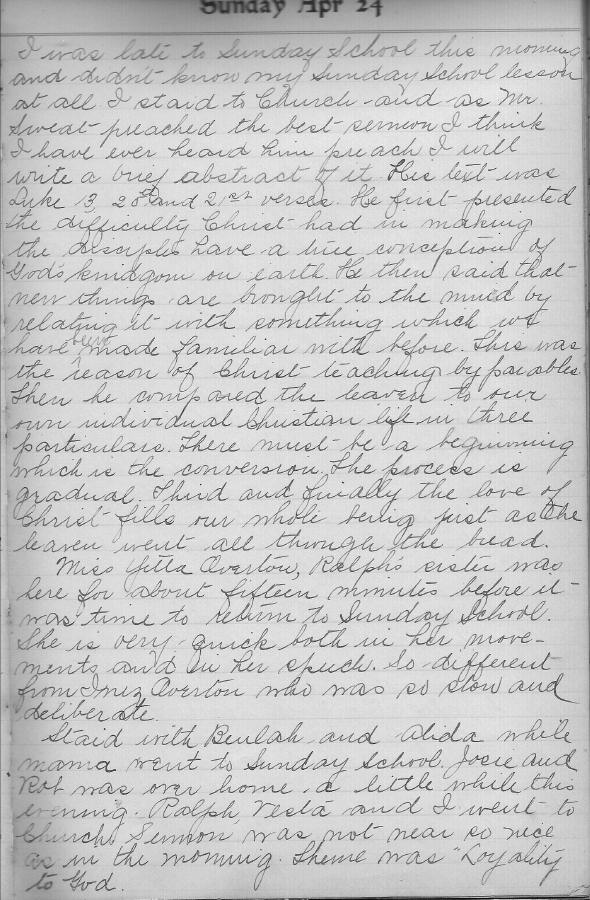 Sunday Apr 24
I was late to Sunday School this morning
and didn't know my Sunday School lesson
at all. I staid to Church and as Mr.
Sweat preached the best sermon I think
I have ever heard him preach I will
write a brief abstract of it. His text was
Luke 13, 20th and 21st verses. He first presented
the difficulty Christ had in making
the disciples have a true conception of
God's knidgom on earth. He then said that
new things are brought to the mind by
relating it with something which we
have been made familiar with before. This was
the reason of Christ teaching by parables.
Then he compared the leaven to our
own individual Christian life in three
particulars. There must be a beginning
which is the conversion. The process is
gradual. Third and finially the love of
Christ fills our whole being just as the
leaven went all through the bread.
Miss Yetta Overton, Ralph's sister was
here for about fifteen minutes before it
was time to return to Sunday School.
She is very quick both in her move-
ments and in her speech. So different
from Inez Averton who was so slow and
deliberate.
Staid with Beulah and Alida while
mama went to Sunday School. Josie and
Rob was over home a little while this
evening. Ralph, Vesta and I went to
Church. Sermon was not near so nice
as in the morning. Theme was "Loyality
to God.